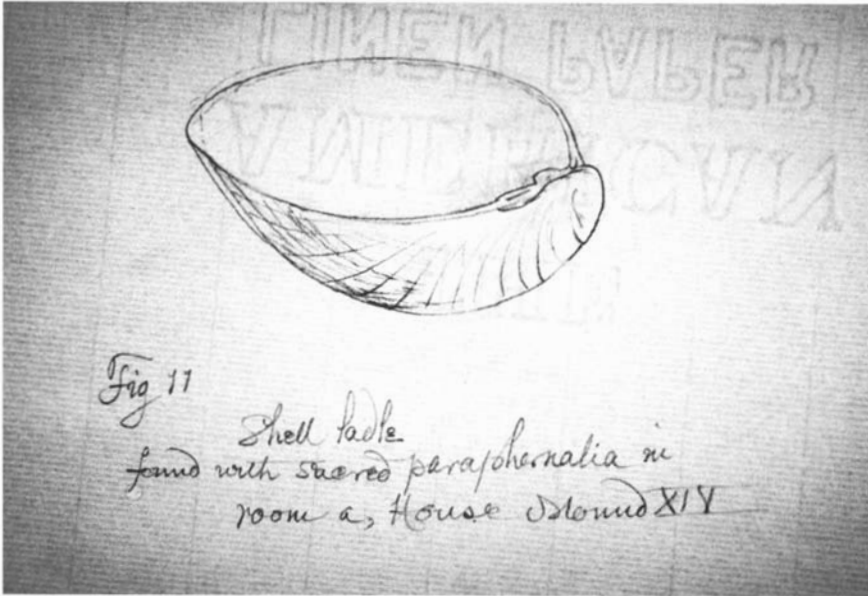 LINEN PAPER
AMERICAN
Fig 11
Shell ladle
found with sacred paraphernalia in
room a, House Mound XIV